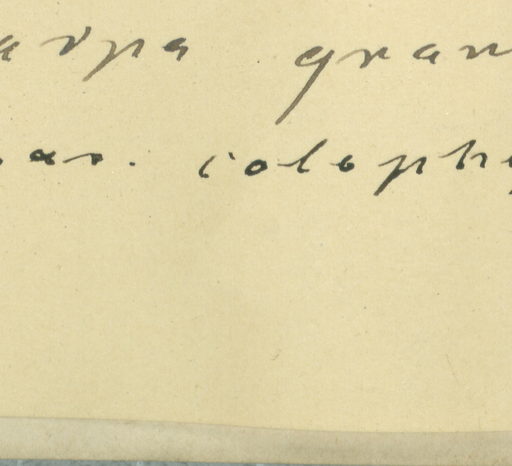 arpa gran
as. coloph